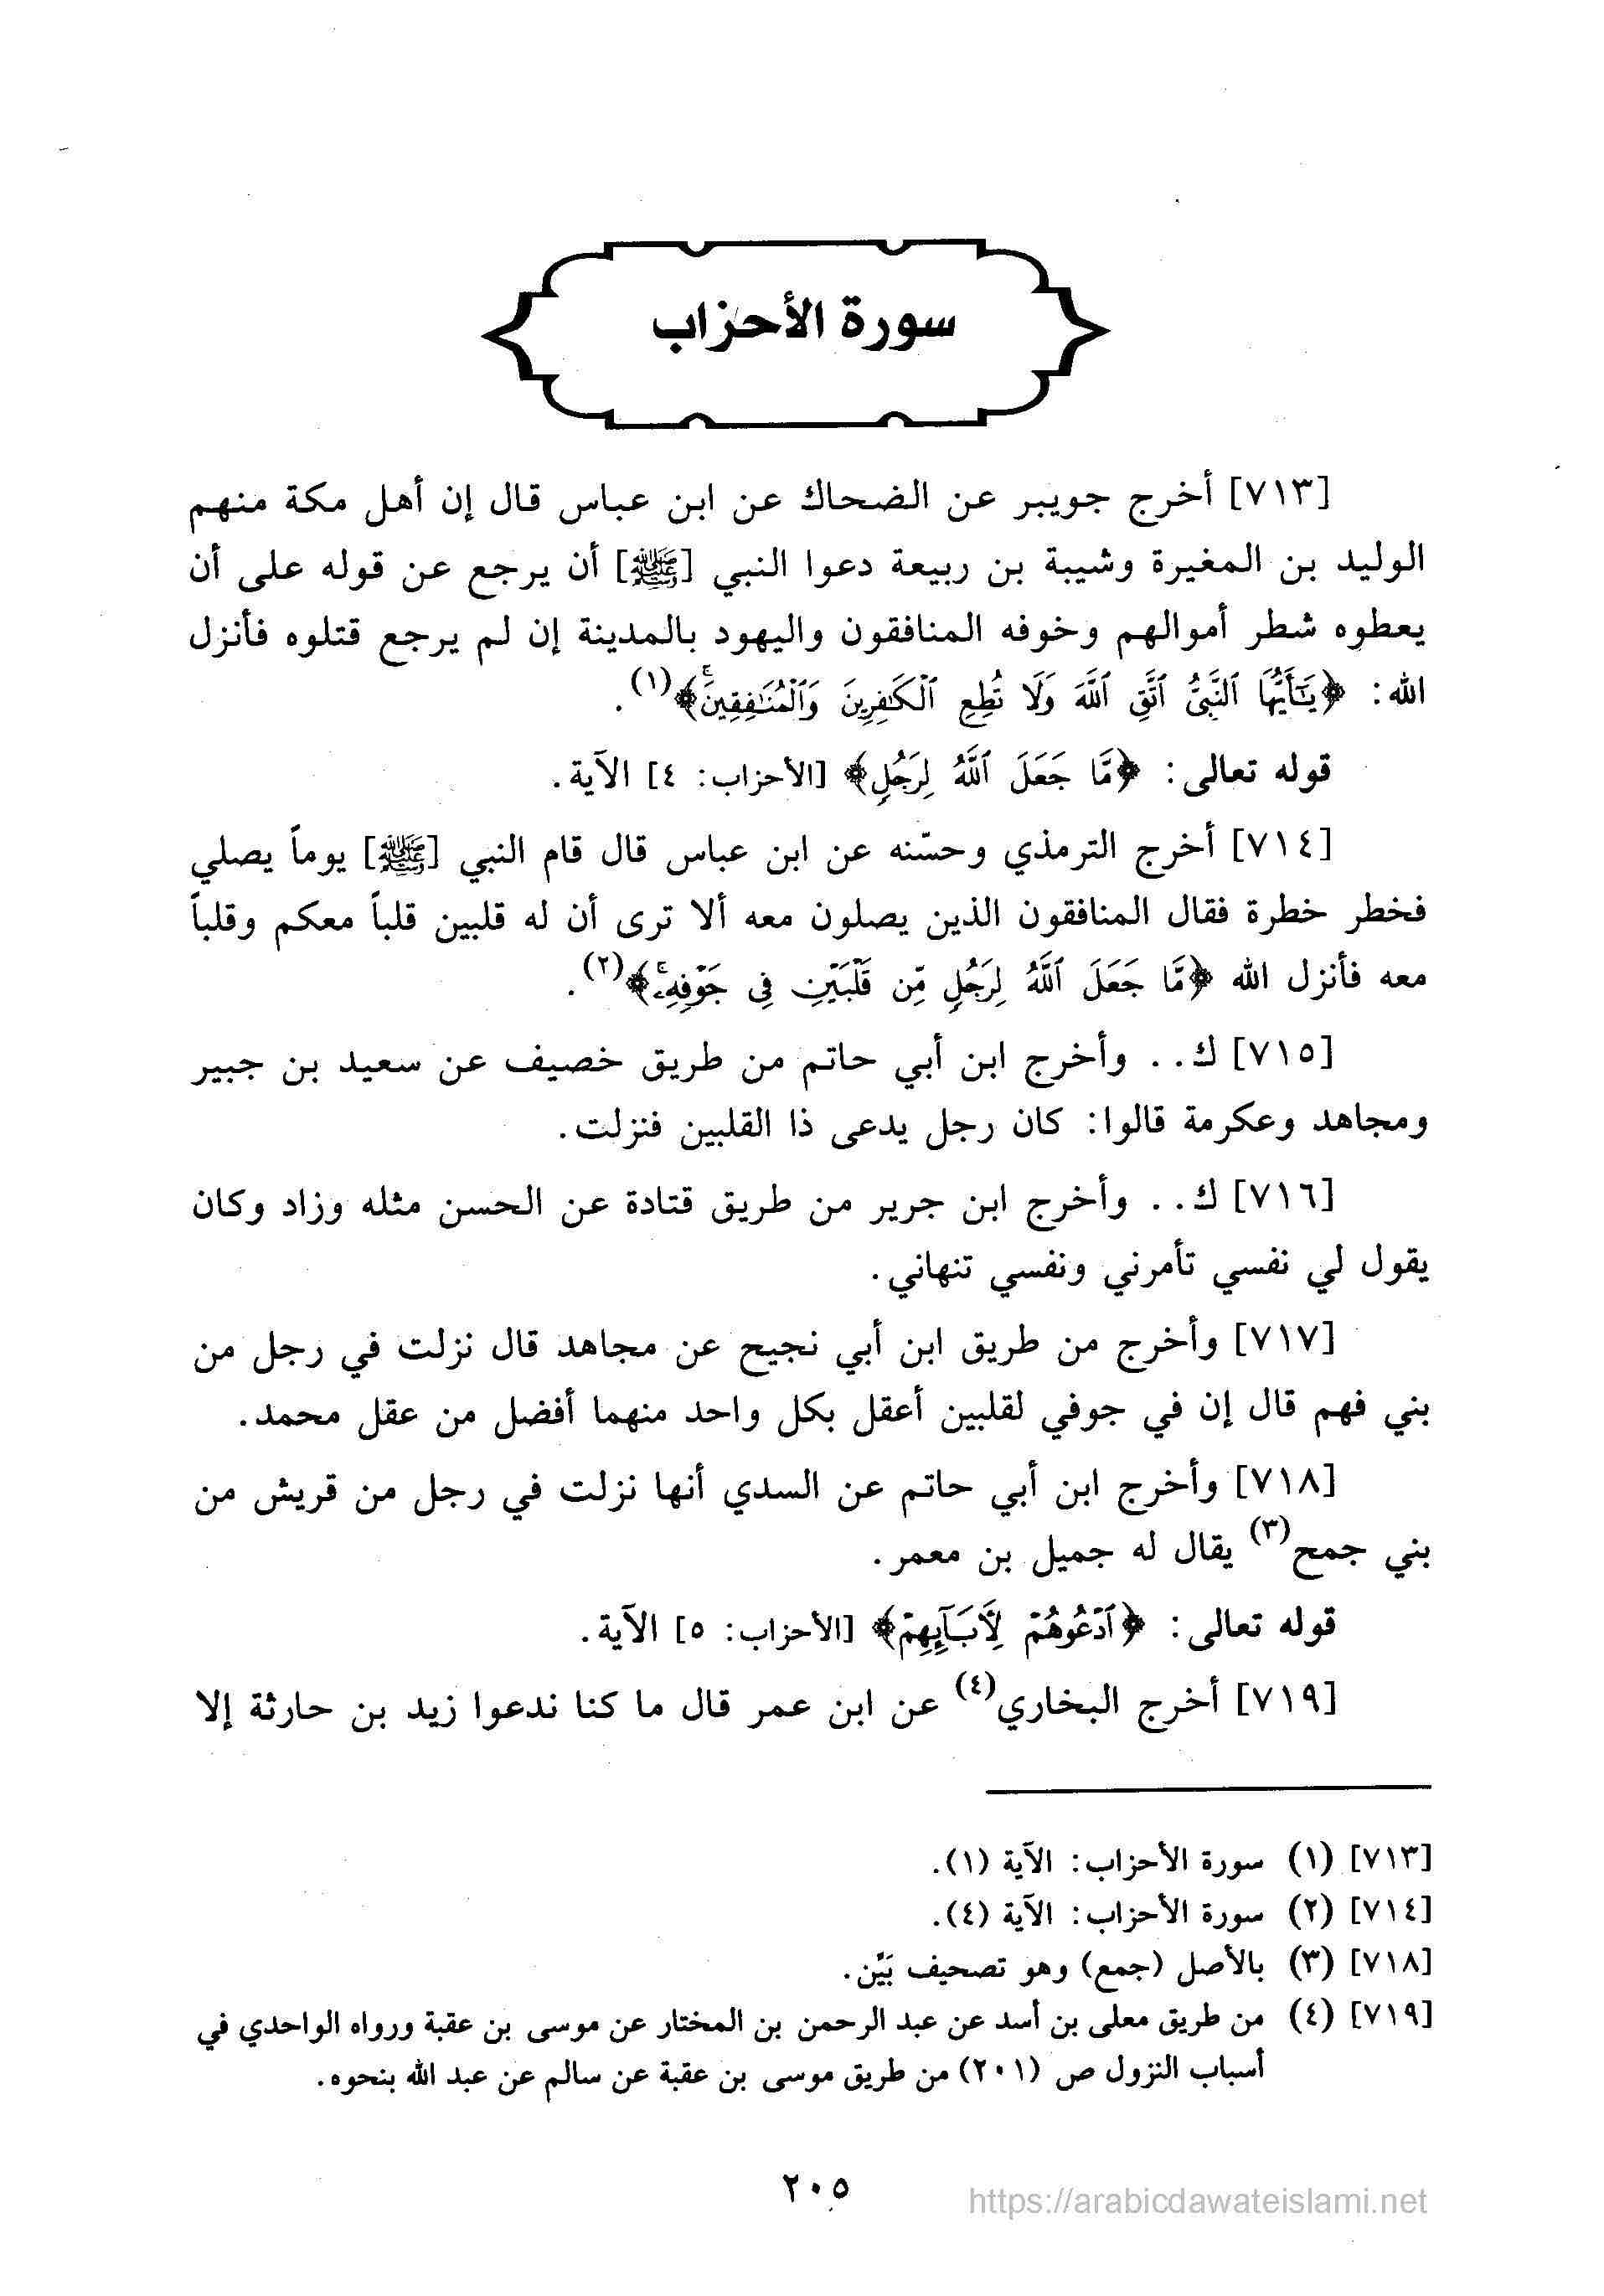 سورة الأحزاب
[٧١٣] أخرج جويبر عن الضحاك عن ابن عباس قال إن أهل مكة منهم
الوليد بن المغيرة وشيبة بن ربيعة دعوا النبي [ﷺ] أن يرجع عن قوله على أن
يعطوه شطر أموالهم وخوفه المنافقون واليهود بالمدينة إن لم يرجع قتلوه فأنزل
الله: ﴿يَٰٓأَيُّهَا ٱلنَّبِىُّ ٱتَّقِ ٱللَّهَ وَلَا تُطِعِ ٱلْكَٰفِرِينَ وَٱلْمُنَٰفِقِينَۚ﴾(١).
قوله تعالى: ﴿مَّا جَعَلَ ٱللَّهُ لِرَجُلٍ﴾ [الأحزاب: ٤] الآية.
[٧١٤] أخرج الترمذي وحسّنه عن ابن عباس قال قام النبي [ﷺ] يوماً يصلي
فخطر خطرة فقال المنافقون الذين يصلون معه ألا ترى أن له قلبين قلباً معكم وقلباً
معه فأنزل الله ﴿مَّا جَعَلَ ٱللَّهُ لِرَجُلٍ مِّن قَلْبَيْنِ فِى جَوْفِهِۦۚ﴾(٢).
[٧١٥] ك.. وأخرج ابن أبي حاتم من طريق خصيف عن سعيد بن جبير
ومجاهد وعكرمة قالوا: كان رجل يدعى ذا القلبين فنزلت.
[٧١٦] ك.. وأخرج ابن جرير من طريق قتادة عن الحسن مثله وزاد وكان
يقول لي نفسي تأمرني ونفسي تنهاني.
[٧١٧] وأخرج من طريق ابن أبي نجيح عن مجاهد قال نزلت في رجل من
بني فهم قال إن في جوفي لقلبين أعقل بكل واحد منهما أفضل من عقل محمد.
[٧١٨] وأخرج ابن أبي حاتم عن السدي أنها نزلت في رجل من قريش من
بني جمح(٣) يقال له جميل بن معمر.
قوله تعالى: ﴿ٱدْعُوهُمْ لِأَبَآئِهِمْ﴾ [الأحزاب: ٥] الآية.
[٧١٩] أخرج البخاري(٤) عن ابن عمر قال ما كنا ندعوا زيد بن حارثة إلا
[٧١٣] (١) سورة الأحزاب: الآية (١).
[٧١٤] (٢) سورة الأحزاب: الآية (٤).
[٧١٨] (٣) بالأصل (جمع) وهو تصحيف بَيِّن.
[٧١٩] (٤) من طريق معلى بن أسد عن عبد الرحمن بن المختار عن موسى بن عقبة ورواه الواحدي في
أسباب النزول ص (٢٠١) من طريق موسى بن عقبة عن سالم عن عبد الله بنحوه.
٢٠٥
https://arabicdawateislami.net